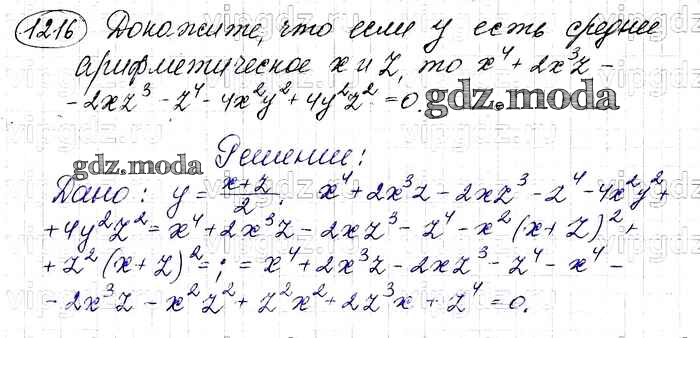 1216 Докажите, что если y есть среднее
арифметическое x и z, то x⁴ + 2x³z -
- 2xz³ - z⁴ - 4x²y² + 4y²z² = 0. gdz.moda
gdz.moda Решение:
Дано: y = (x+z)/2; x⁴ + 2x³z - 2xz³ - z⁴ - 4x²y² +
+ 4y²z² = x⁴ + 2x³z - 2xz³ - z⁴ - x²(x + z)² +
+ z²(x + z)² =; = x⁴ + 2x³z - 2xz³ - z⁴ - x⁴ -
- 2x³z - x²z² + z²x² + 2z³x + z⁴ = 0.